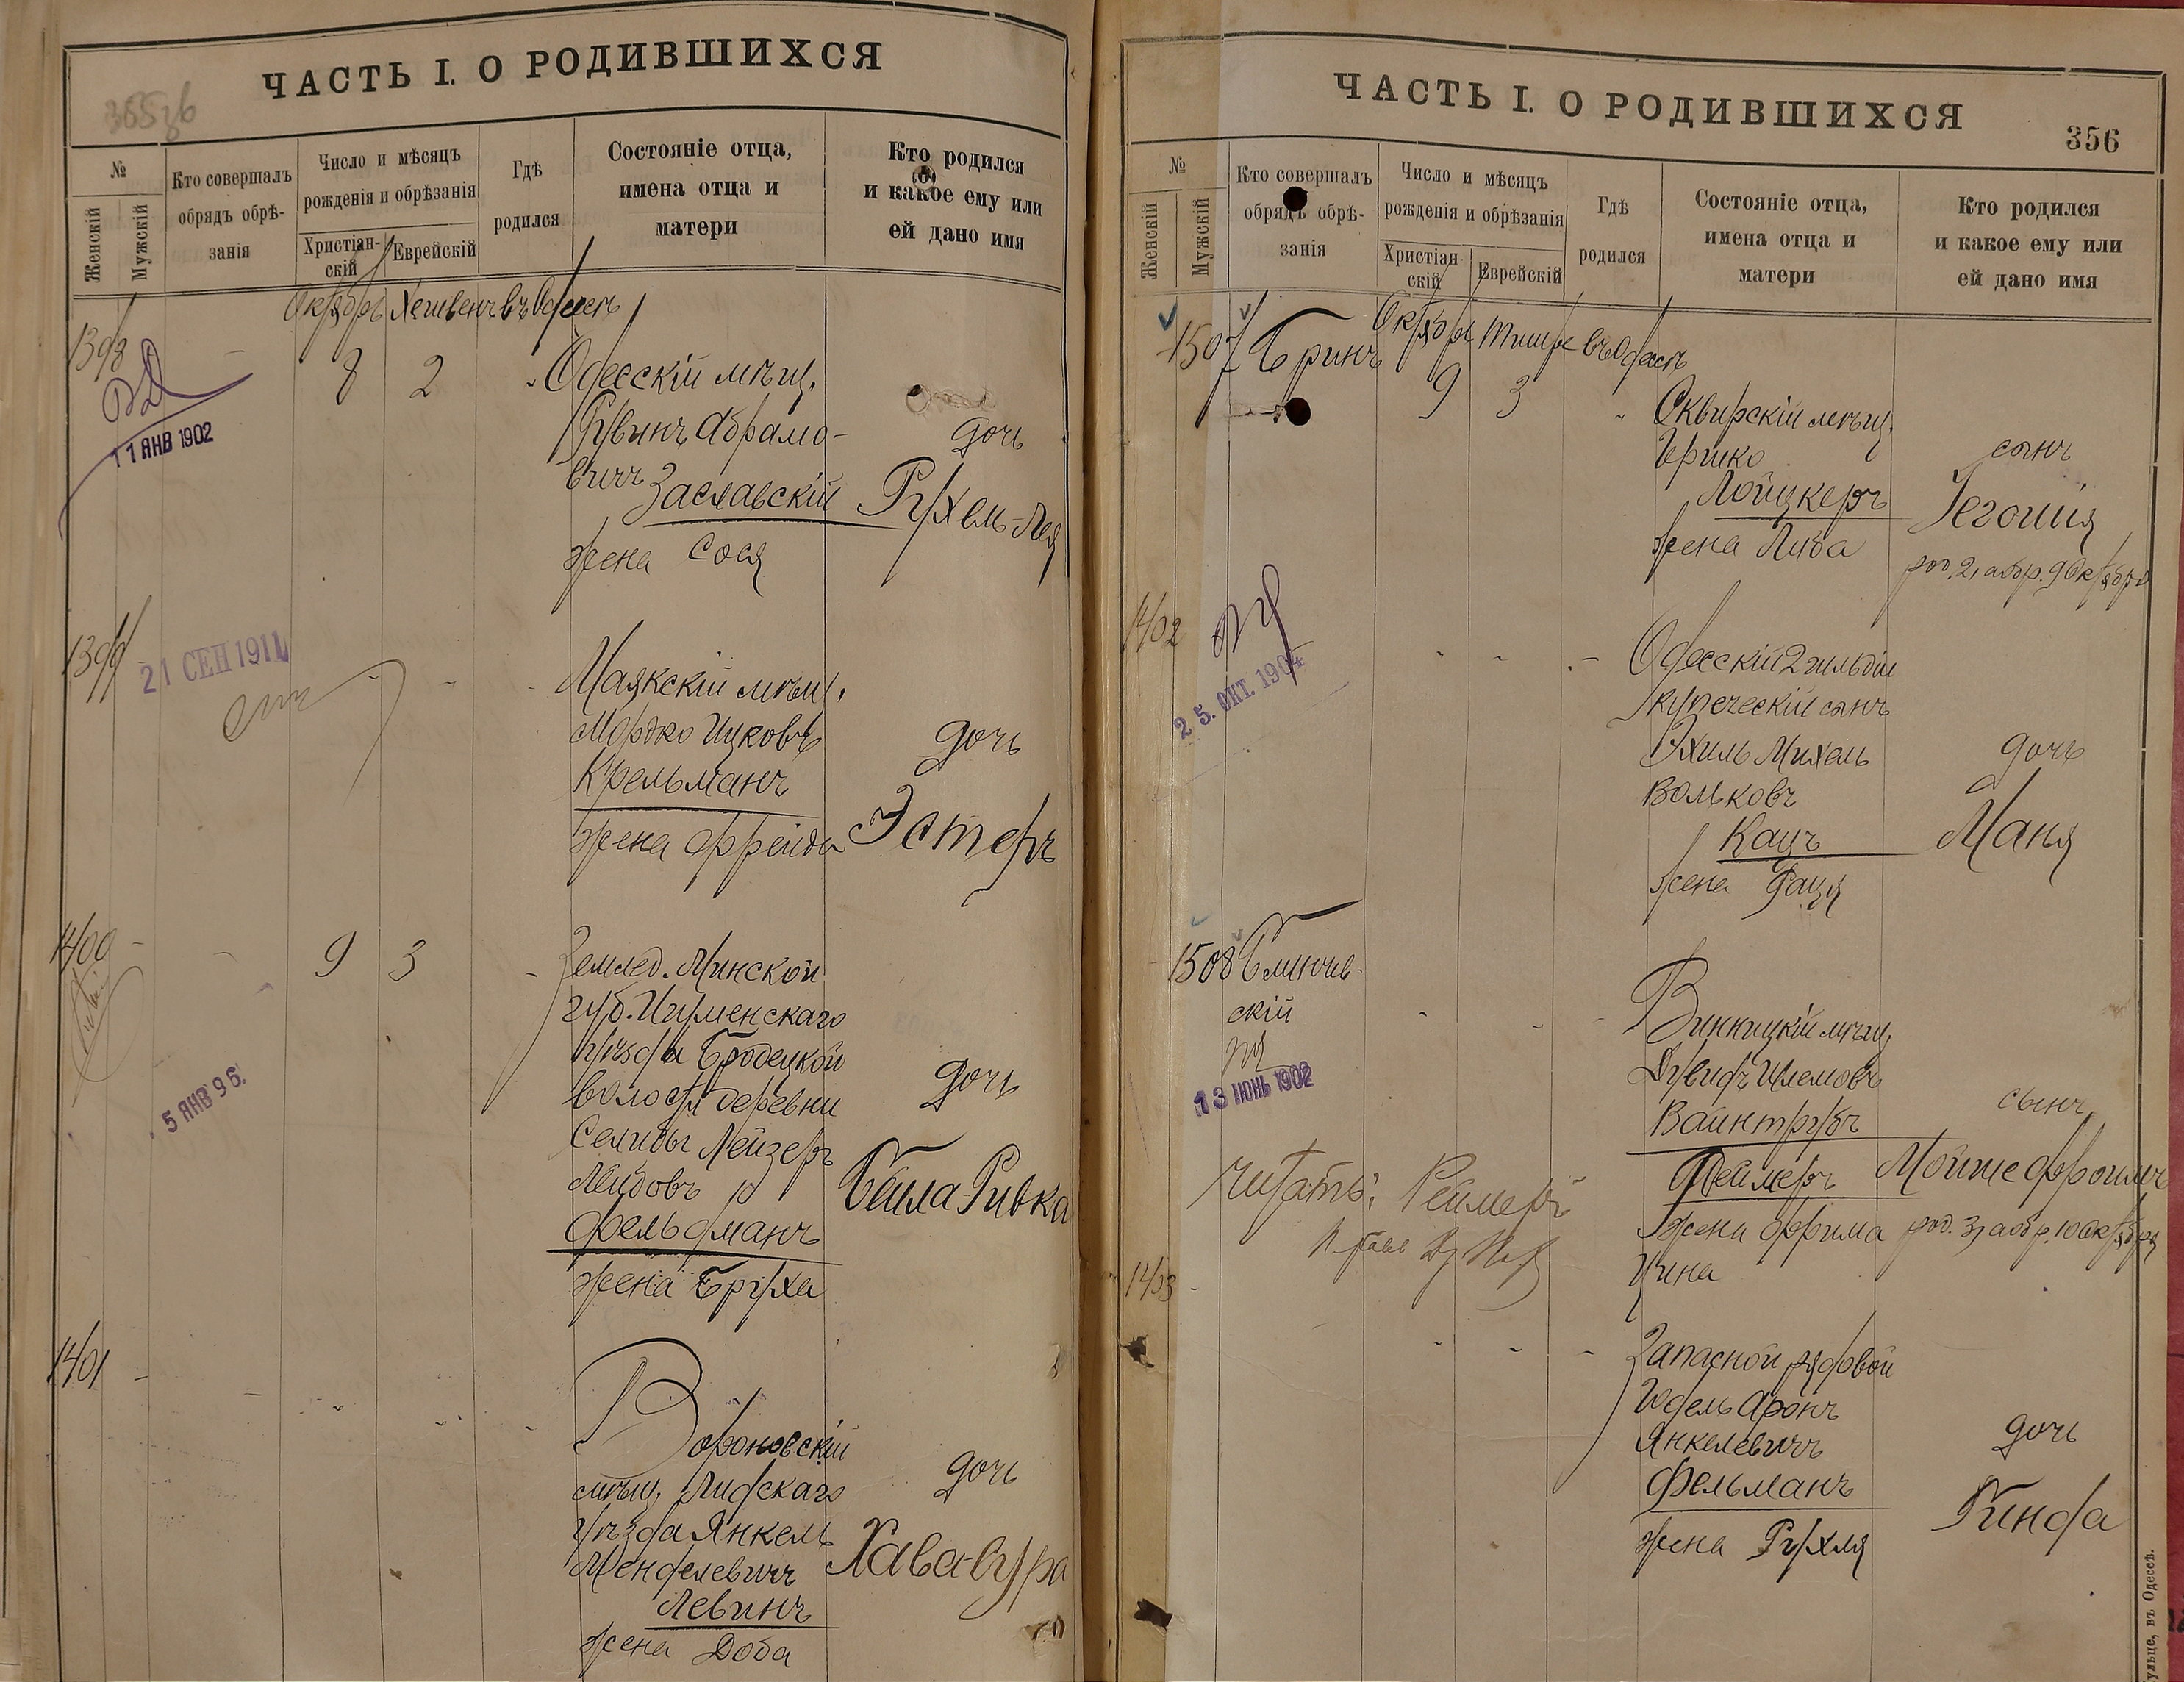 ЧАСТЬ I. О РОДИВШИХСЯ
365
№
Женскій
Мужскій
Кто совершалъ
обрядъ обрѣ-
занія
Число и мѣсяцъ
рожденія и обрѣзанія
Христіан-
скій
Еврейскій
Гдѣ
родился
Состояніе отца,
имена отца и
матери
Кто родился
и какое ему или
ей дано имя
Октябрь Хешвенъ въ Одессѣ
1398
8 2
Одесскій мѣщ.
Рувинъ Абрамо-
вичъ Заславскій
жена Сося
дочь
Рухель-Лея
11 ЯНВ 1902
1399
21 СЕН 1911
Маякскій мѣщ.
Мордко Ицковъ
Крельманъ
жена Фрейда
дочь
Эстеръ
1400
9 3
Землед. Минской
губ. Игуменскаго
уѣзда Бродецкой
волости деревни
Селибы Лейзеръ
Лейбовъ
Фельдманъ
жена Бруха
дочь
Бейла Ривка
5 ЯНВ 96.
1401
Вороновскій
мѣщ. Лидскаго
уѣзда Янкель
Менделевичъ
Левинъ
жена Доба
дочь
Хава-Сура
ЧАСТЬ I. О РОДИВШИХСЯ
356
№
Женскій
Мужскій
Кто совершалъ
обрядъ обрѣ-
занія
Число и мѣсяцъ
рожденія и обрѣзанія
Христіан-
скій
Еврейскій
Гдѣ
родился
Состояніе отца,
имена отца и
матери
Кто родился
и какое ему или
ей дано имя
Октябрь Тишре въ Одессѣ
1507 Бринъ
9 3
Сквирскій мѣщ.
Гершко
Лойцкеръ
жена Либа
сынъ
Іегошія
род. 2, а обр. 9 Октября
1402
25. ОКТ. 1904
Одесскій 2 гильдіи
купеческій сынъ
Эхиль Михель
Вольковъ
Кацъ
жена
дочь
Маня
1508 Блинчев-
скій
13 ІЮНЬ 1902
Винницкій мѣщ.
Дувидъ Шлемовъ
Вайнтрубъ
Реймеръ
жена Фрима
Цина
сынъ
Мойше Фроимъ
род. 3, а обр. 10 Октября
Читать: Реймеръ
1403
Запасной рядовой
Юдель Аронъ
Янкелевичъ
Фельманъ
жена Рухля
дочь
Гинда
ульце, въ Одессѣ.